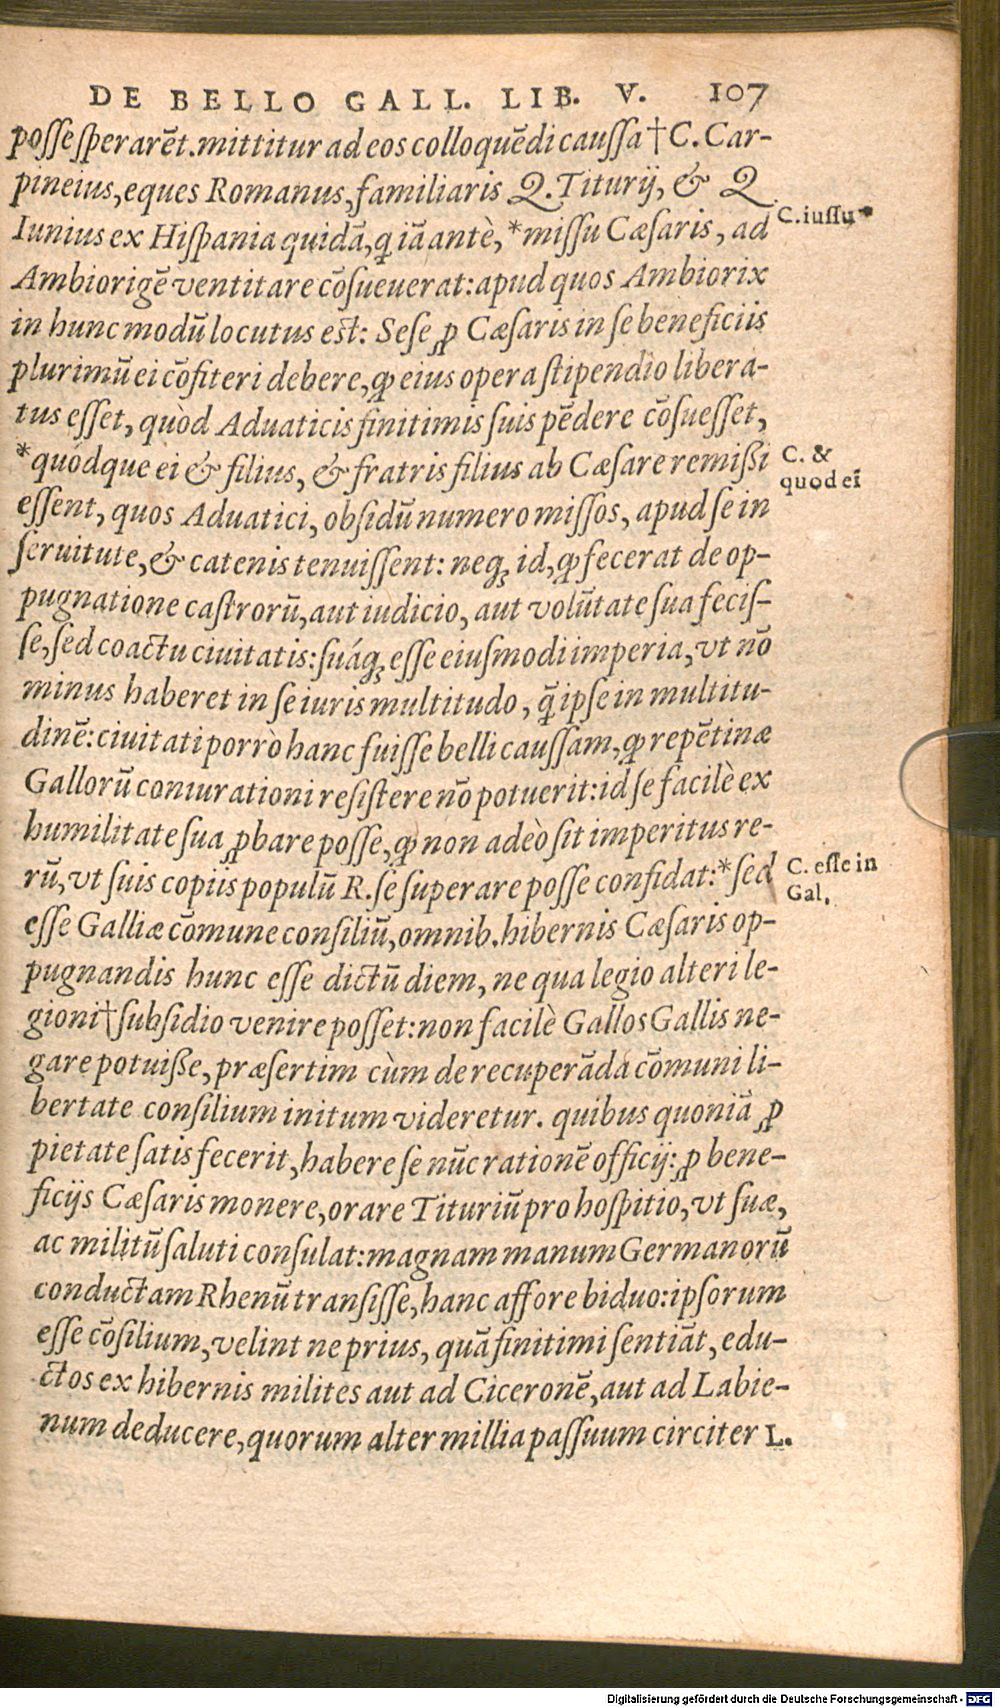 DE BELLO GALL. LIB. V. 107
posse sperarēt. mittitur ad eos colloquēdi caussa † C. Car-
pineius, eques Romanus, familiaris Q. Titurij, & Q
Iunius ex Hispania quidā, ꝗ iā antè, * missu Cæsaris, ad
C. iussu
Ambiorigē ventitare cōsueuerat: apud quos Ambiorix
in hunc modū locutus est: Sese ꝓ Cæsaris in se beneficiis
plurimū ei cōfiteri debere, ꝙ eius opera stipendio libera-
tus esset, quòd Aduaticis finitimis suis pēdere cōsuesset,
* quódque ei & filius, & fratris filius ab Cæsare remißi
C. &
quod ei
essent, quos Aduatici, obsidū numero missos, apud se in
seruitute, & catenis tenuissent: neqꝫ id, ꝙ fecerat de op-
pugnatione castrorū, aut iudicio, aut volūtate sua fecis-
se, sed coactu ciuitatis: suáqꝫ esse eiusmodi imperia, vt nō
minus haberet in se iuris multitudo, ꝗ̃ ipse in multitu-
dinē: ciuitati porrò hanc fuisse belli caussam, ꝙ repētinæ
Gallorū coniurationi resistere nō potuerit: id se facilè ex
humilitate sua ꝓbare posse, ꝙ non adeò sit imperitus re-
rū, vt suis copiis populū R. se superare posse confidat: * sed
C. esse in
Gal.
esse Galliæ cōmune consiliū, omnib. hibernis Cæsaris op-
pugnandis hunc esse dictū diem, ne qua legio alteri le-
gioni † subsidio venire posset: non facilè Gallos Gallis ne-
gare potuiße, præsertim cùm de recuperāda cōmuni li-
bertate consilium initum videretur. quibus quoniā ꝓ
pietate satisfecerit, habere se nūc rationē officij: ꝓ bene-
ficijs Cæsaris monere, orare Tituriū pro hospitio, vt suæ,
ac militū saluti consulat: magnam manum Germanorū
conductam Rhenū transisse, hanc affore biduo: ipsorum
esse cōsilium, velint ne prius, quā finitimi sentiāt, edu-
ctos ex hibernis milites aut ad Ciceronē, aut ad Labie-
num deducere, quorum alter millia passuum circiter L.
Digitalisierung gefördert durch die Deutsche Forschungsgemeinschaft - DFG